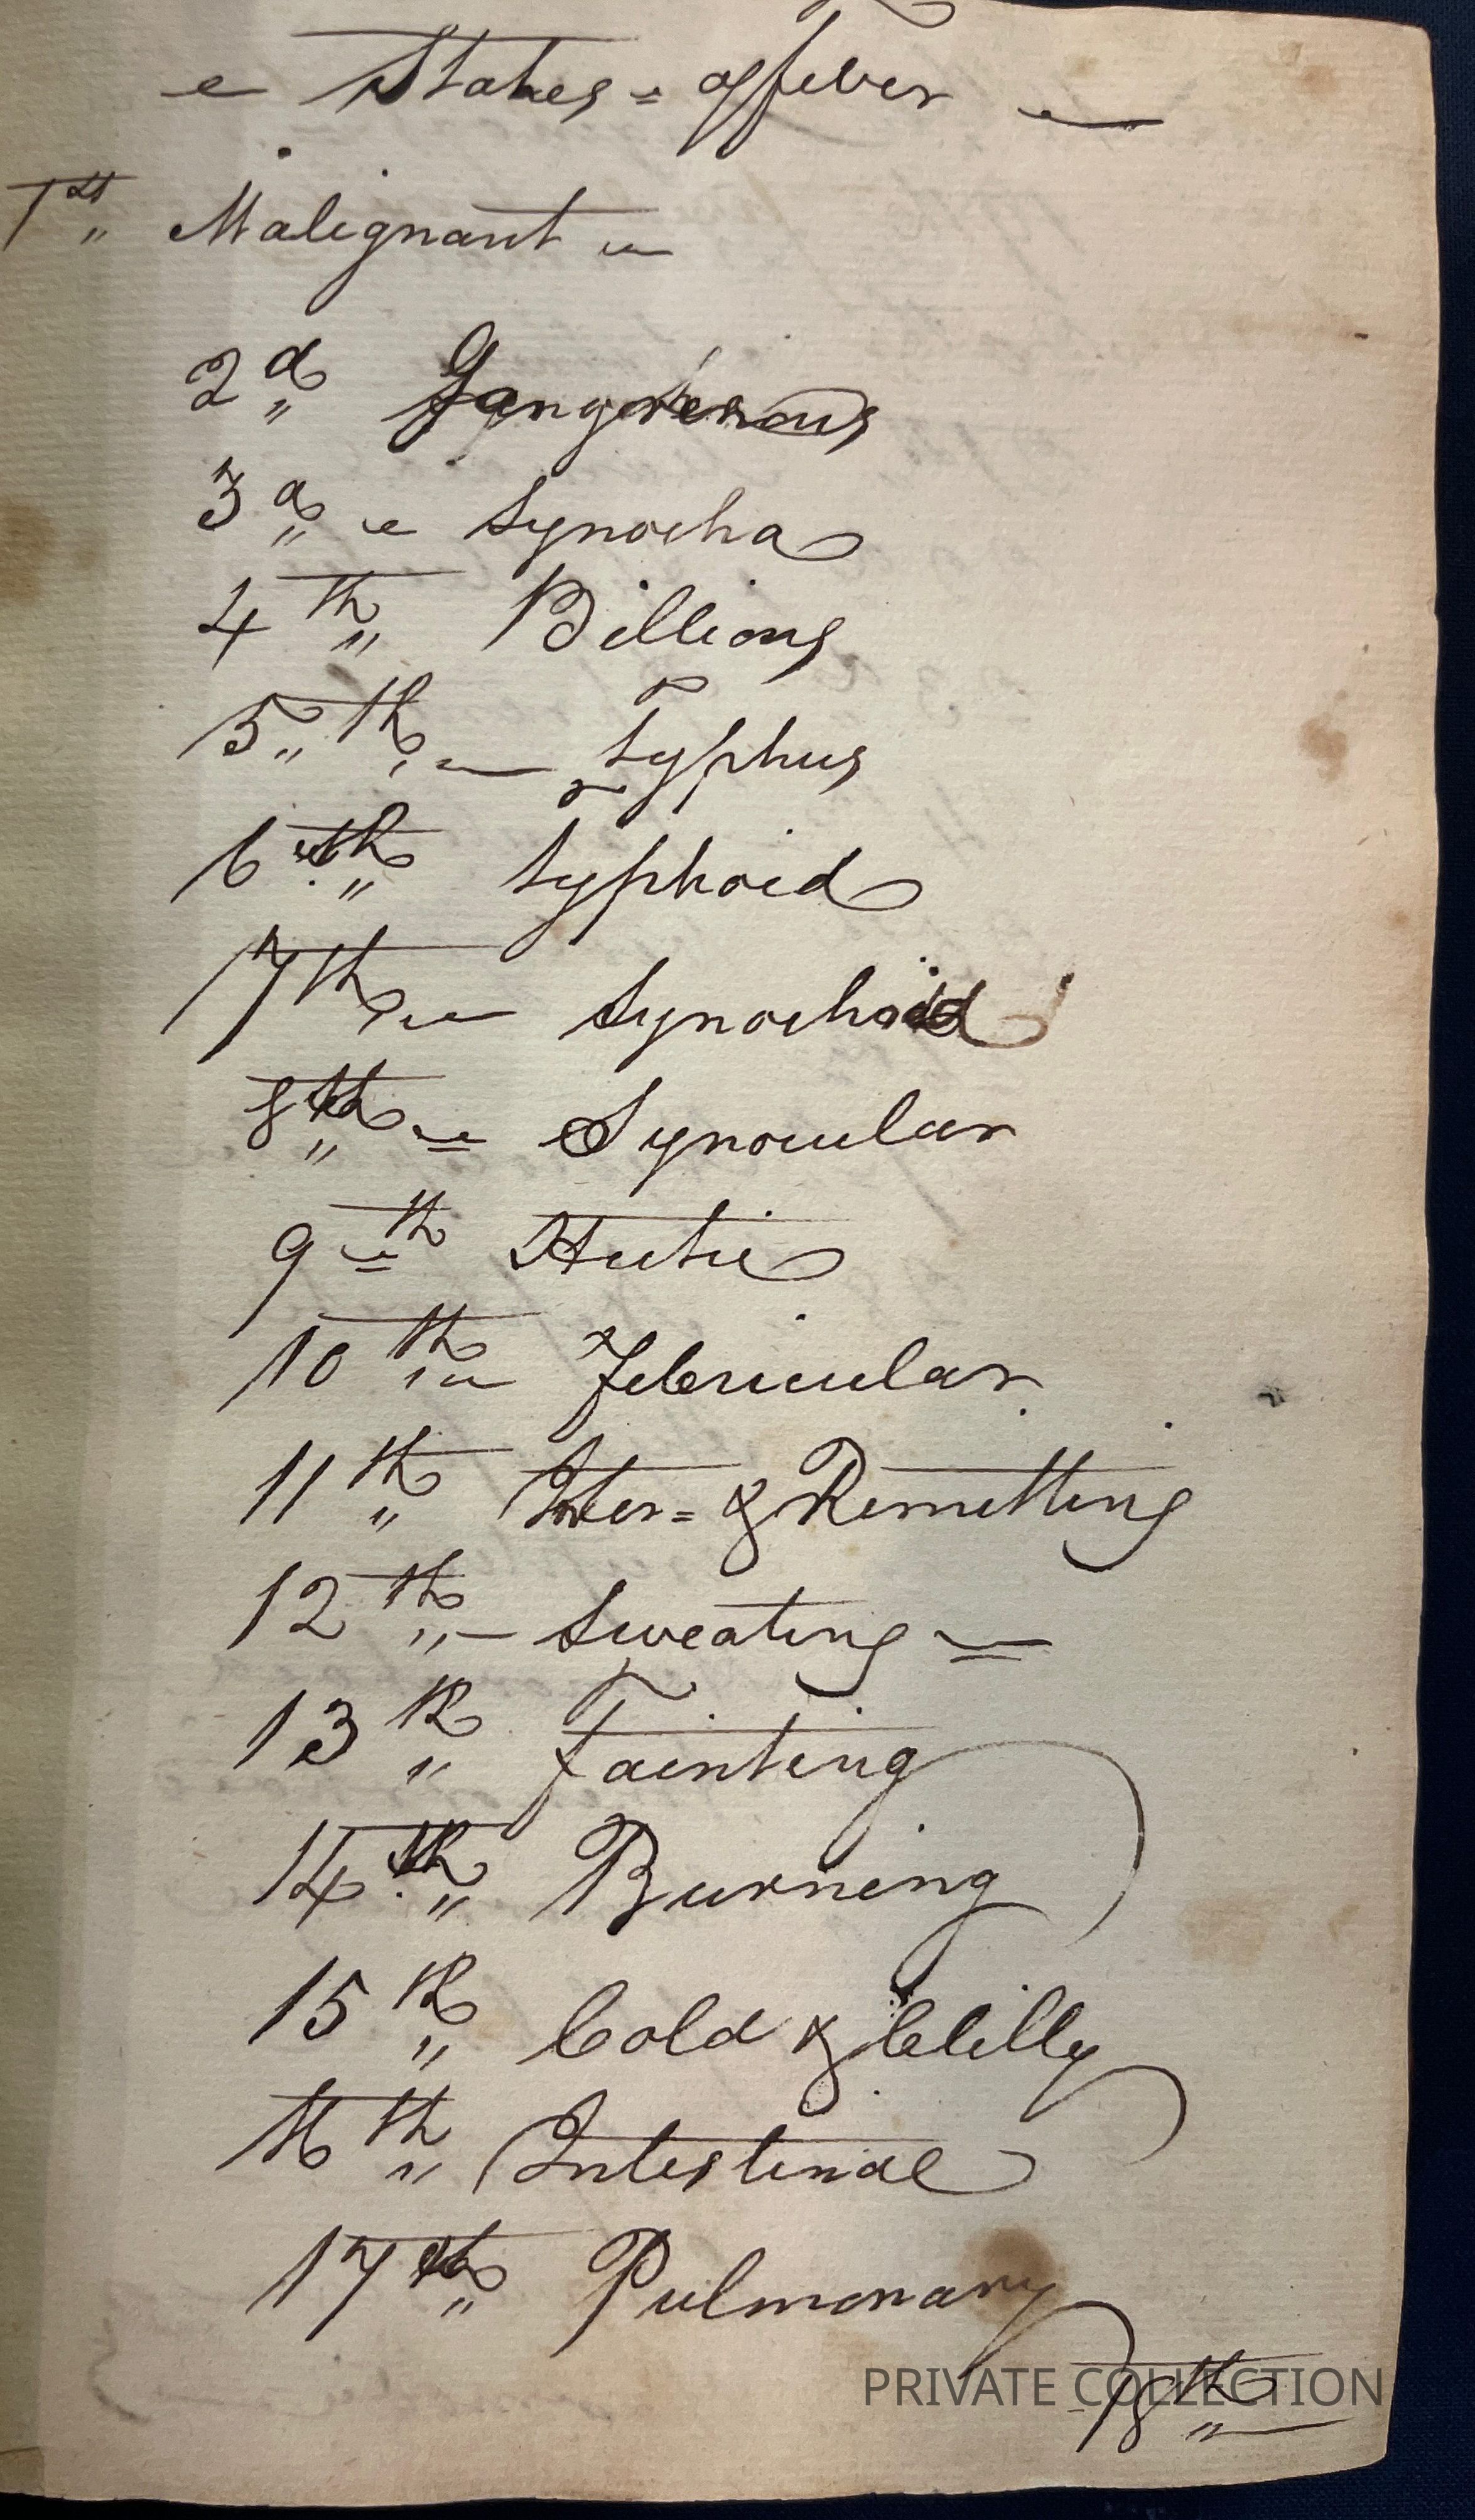 States = of fever
1st Malignant
2d Gangrenous
3d Synocha
4th Billious
5th Typhus
6th Typhoid
7th Synochoid
8th Synocular
9th Hectic
10th Febricular
11th Inter = & Remitting
12th Sweating
13th Fainting
14th Burning
15th Cold & Chilly
16th Intestinal
17th Pulmonary
18th
PRIVATE COLLECTION